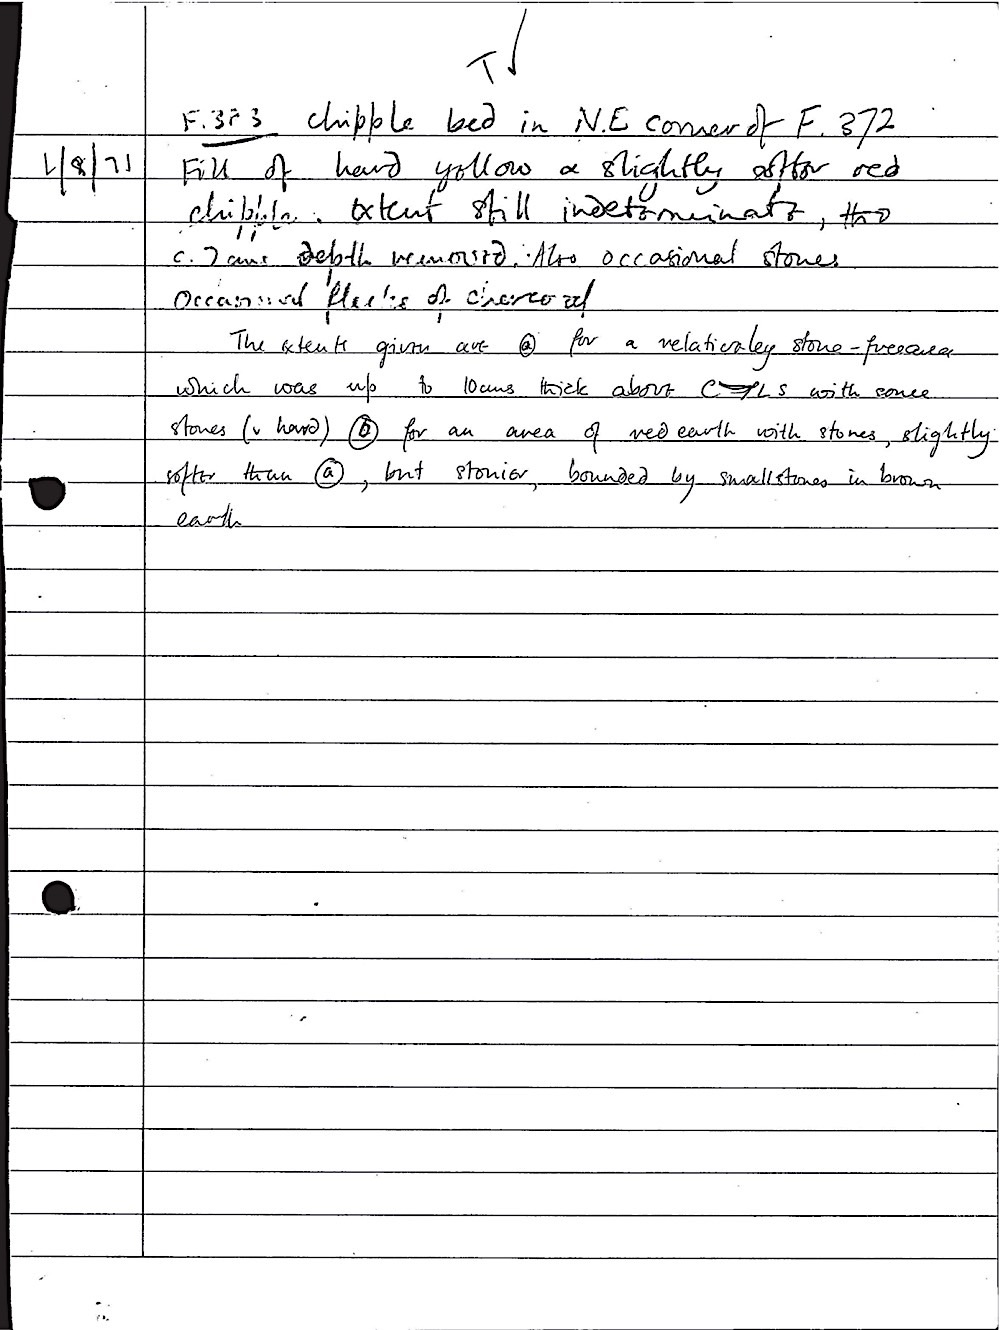 T
F.373 chipple bed in N.E corner of F. 372
1/8/71 Fill of hard yellow & slightly softer red
chipple. Extent still indeterminate, tho
c. 7cms depth removed. Also occasional stones
Occasional flecks of charcoal
The extents given are (a) for a relativaley stone-free area
which was up to 10cms thick about with some
stones (v hard) (b) for an area of red earth with stones, slightly
softer than (a), but stonier, bounded by small stones in brown
earth